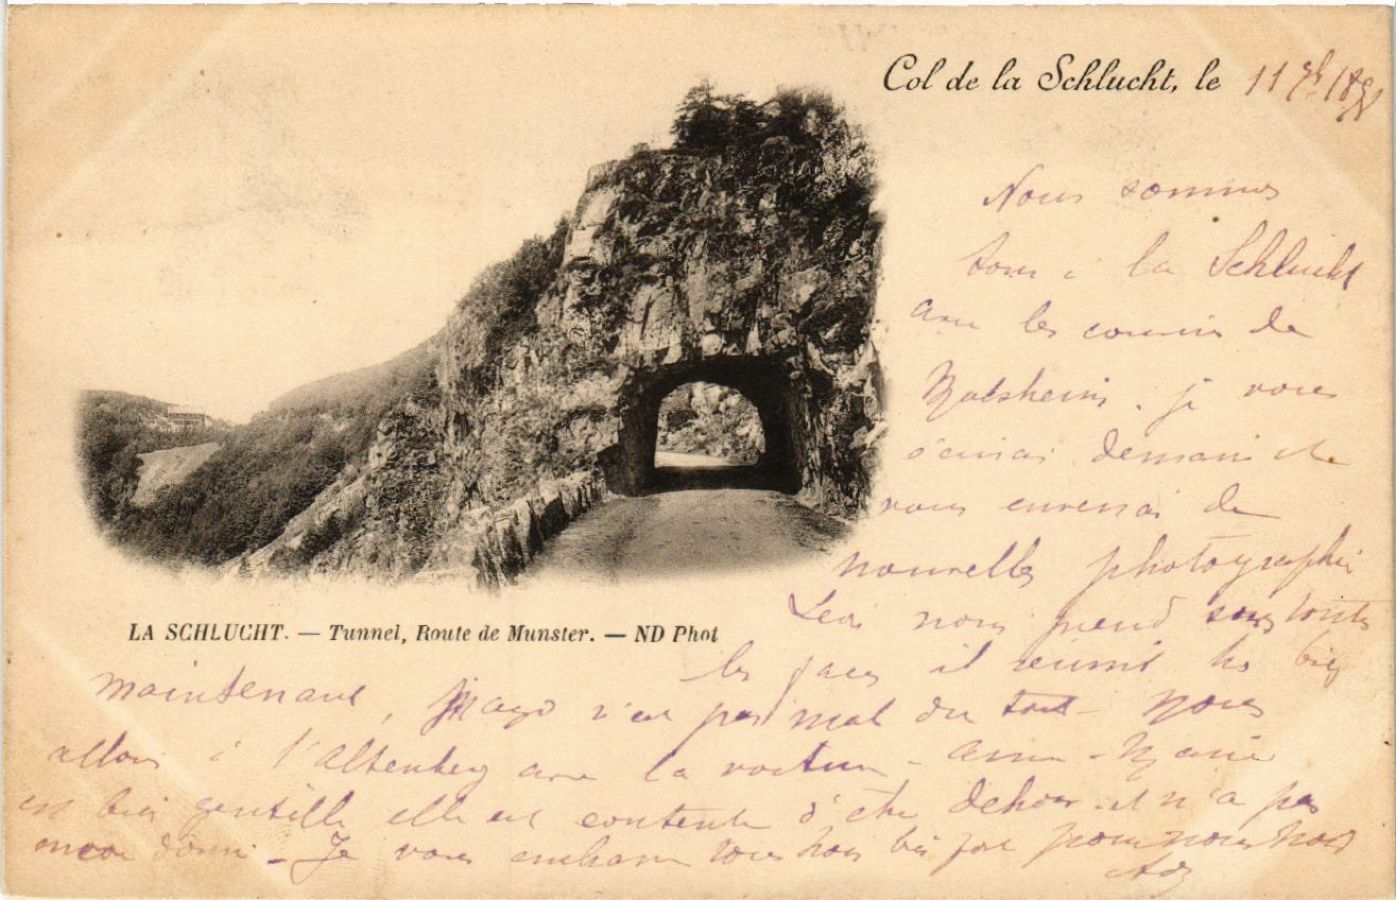 Col de la Schlucht, le 11 7bre 189
Nous sommes
tous à la Schlucht
avec les cousins de
Molsheim. je vous
écrirai demain et
vous enverrai de
nouvelles photographies
nous prend sous toutes
les faces il réussit très bien
LA SCHLUCHT. — Tunnel, Route de Munster. — ND Phot
maintenant, n'est pas mal du tout - Nous
allons à l'Altenberg avec la voiture - Anne-Marie
est bien gentille elle est contente d'être dehors et n'a pas
encore dormi - Je vous embrasse tous trois bien fort pour nous trois